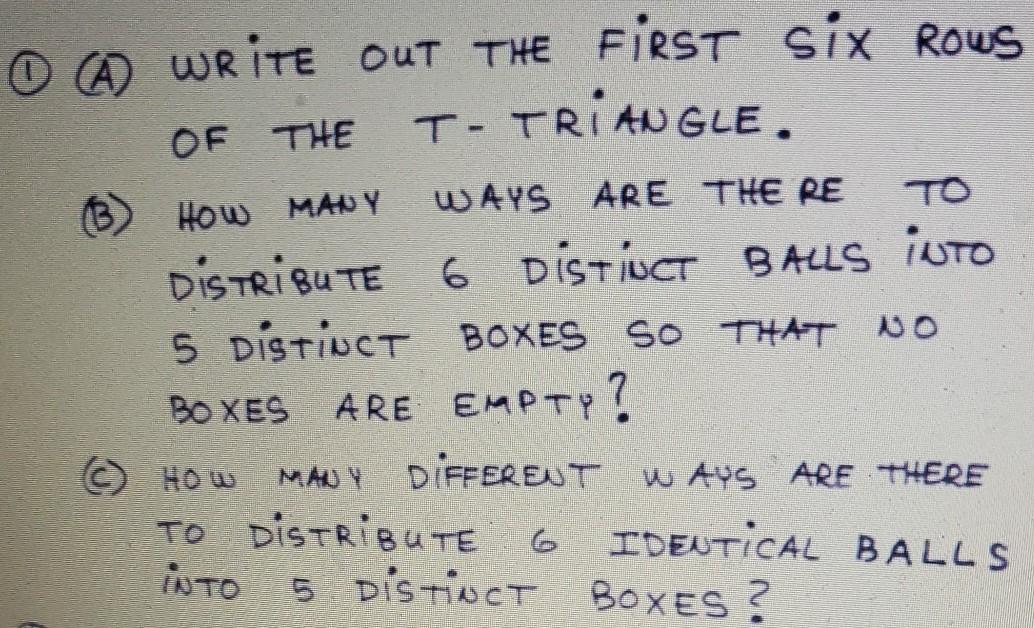 ① (A) WRITE OUT THE FIRST SIX ROWS
OF THE T-TRIANGLE.
(B) HOW MANY WAYS ARE THERE TO
DISTRIBUTE 6 DISTINCT BALLS INTO
5 DISTINCT BOXES SO THAT NO
BOXES ARE EMPTY?
(C) HOW MANY DIFFERENT WAYS ARE THERE
TO DISTRIBUTE 6 IDENTICAL BALLS
INTO 5 DISTINCT BOXES?